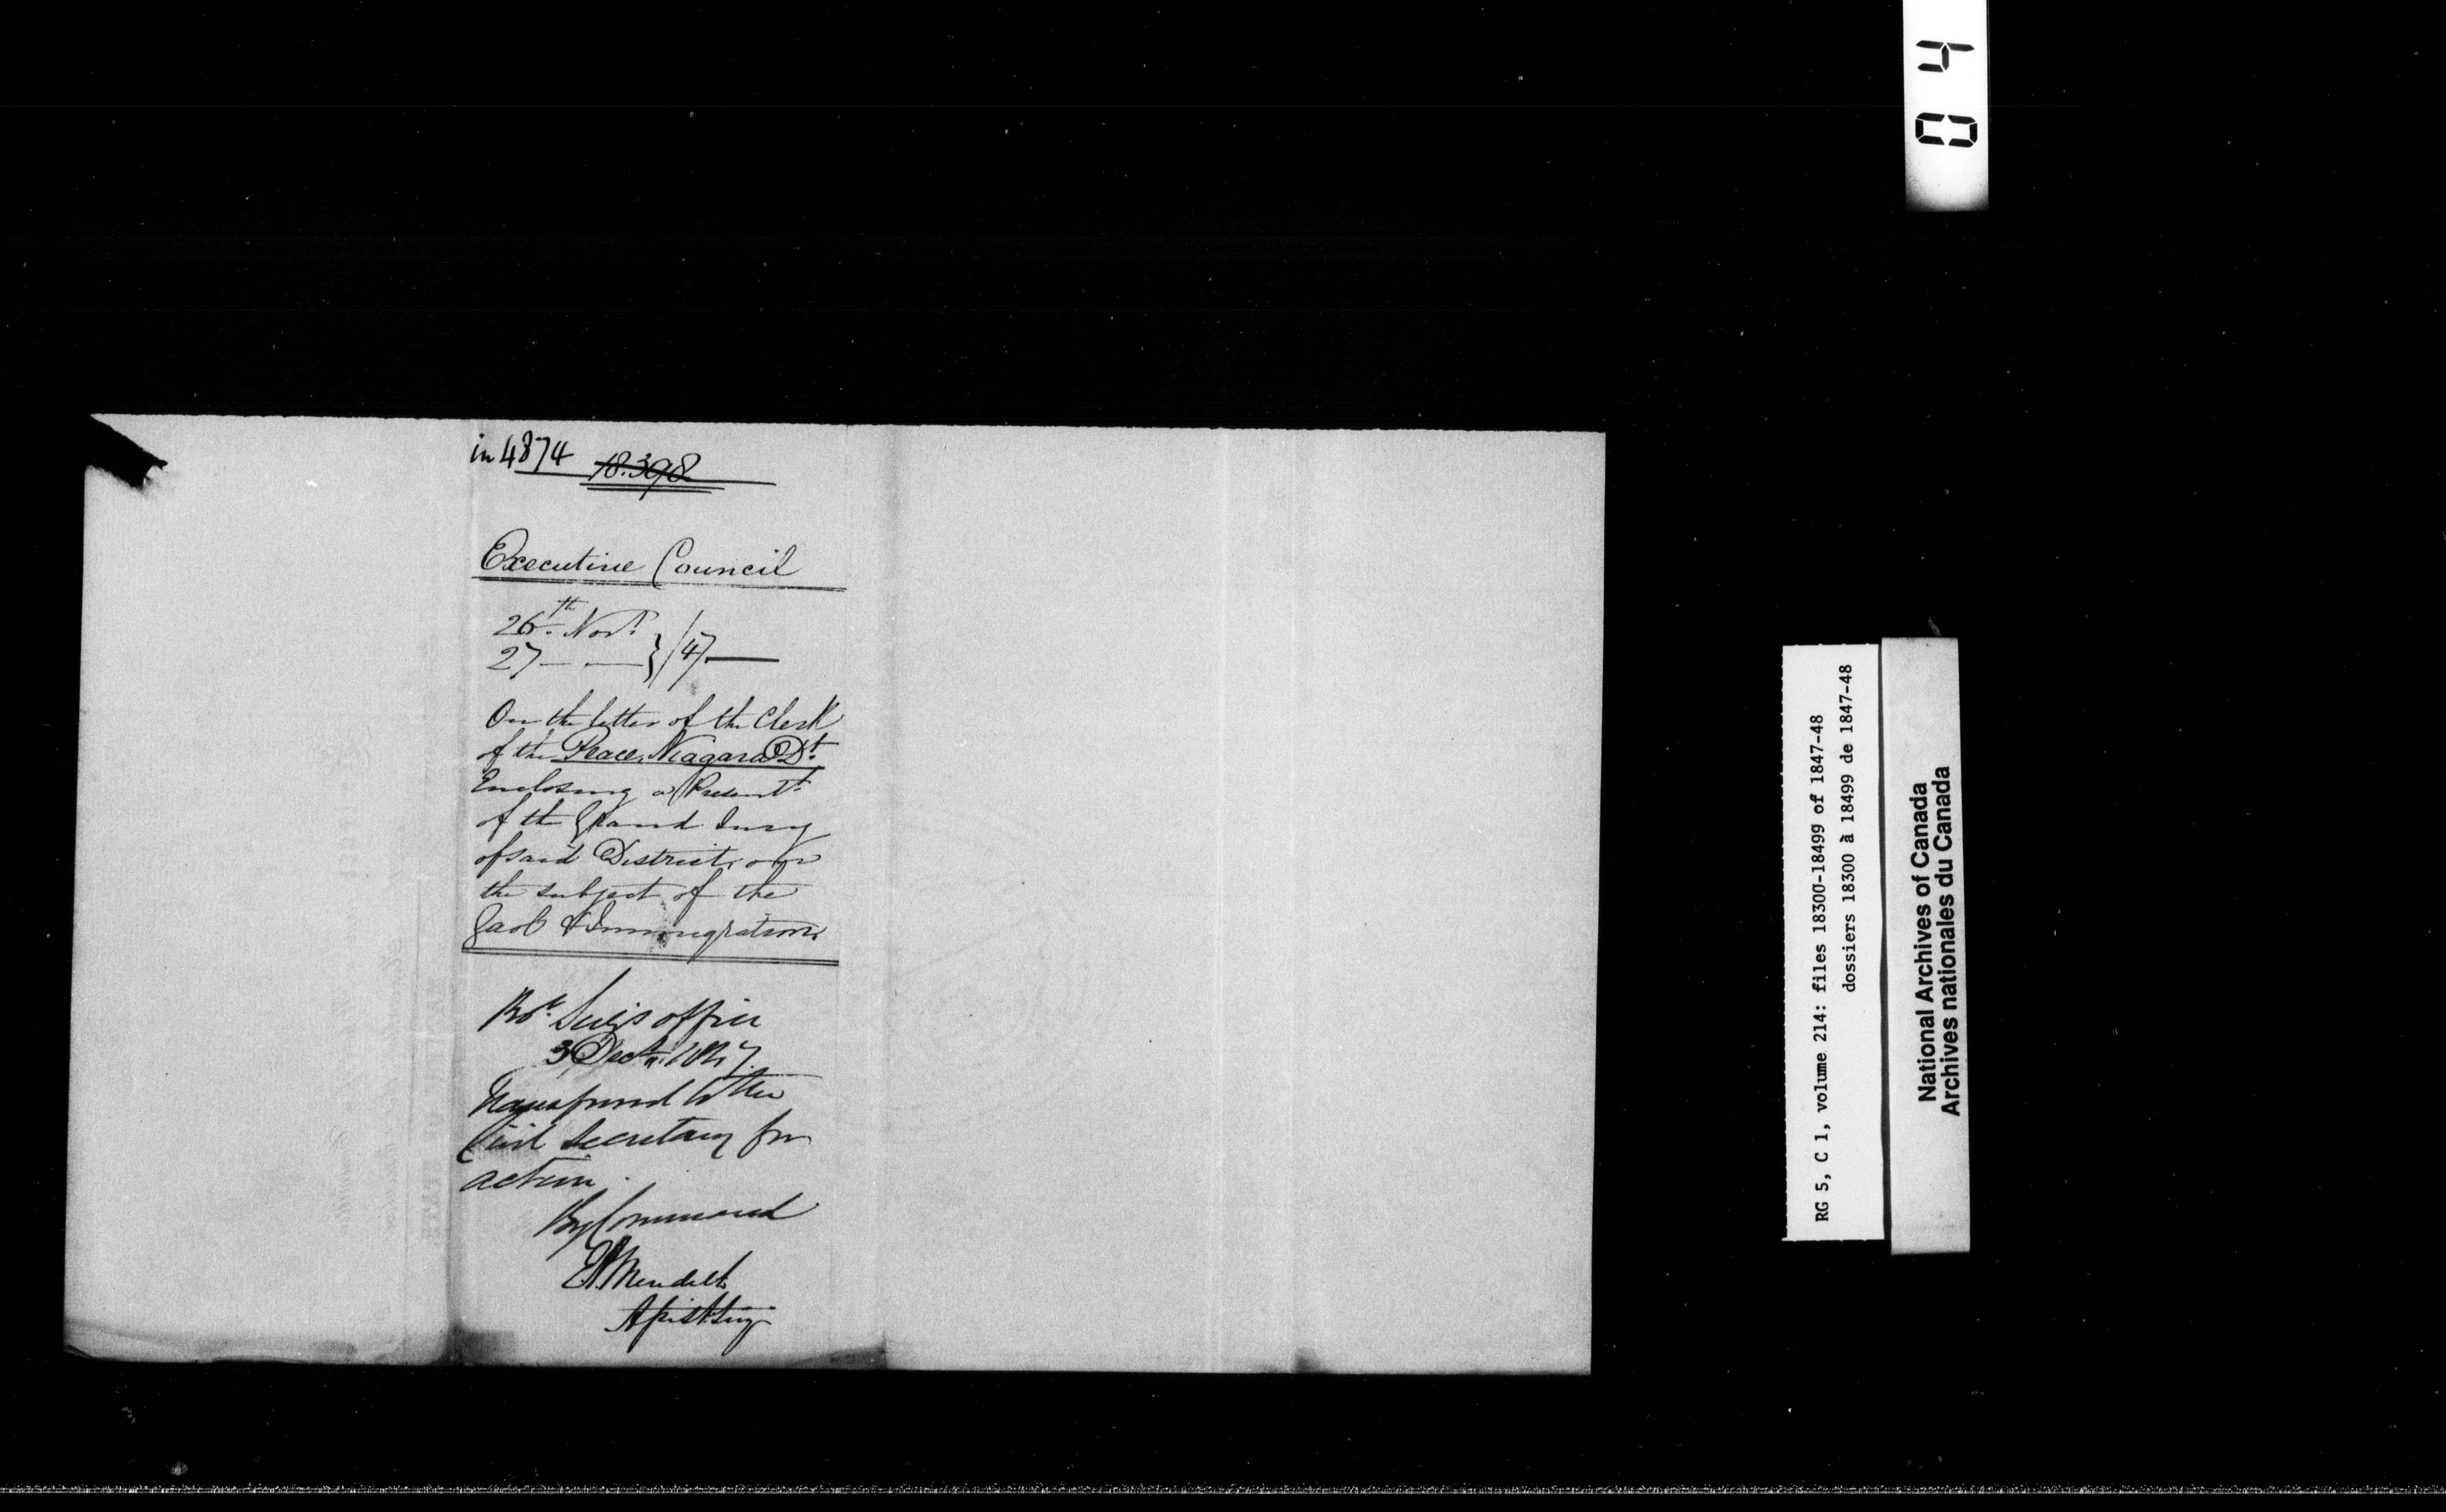 in 4874 18.398
Executive Council
26th. Novr.
27 — — } /47. —
On the letter of the Clerk
of the Peace, Niagara Dt.
Enclosing a Presentt.
of the Grand Jury
of said District, on
the subject of the
Gaol & Immigration.
Secy's office
3 Decr. 1847.
Transferred to the
Civil Secretary for
action.
By Command
E. Meredith
Asst Secy
04
RG 5, C 1, volume 214: files 18300-18499 of 1847-48
dossiers 18300 à 18499 de 1847-48
National Archives of Canada
Archives nationales du Canada